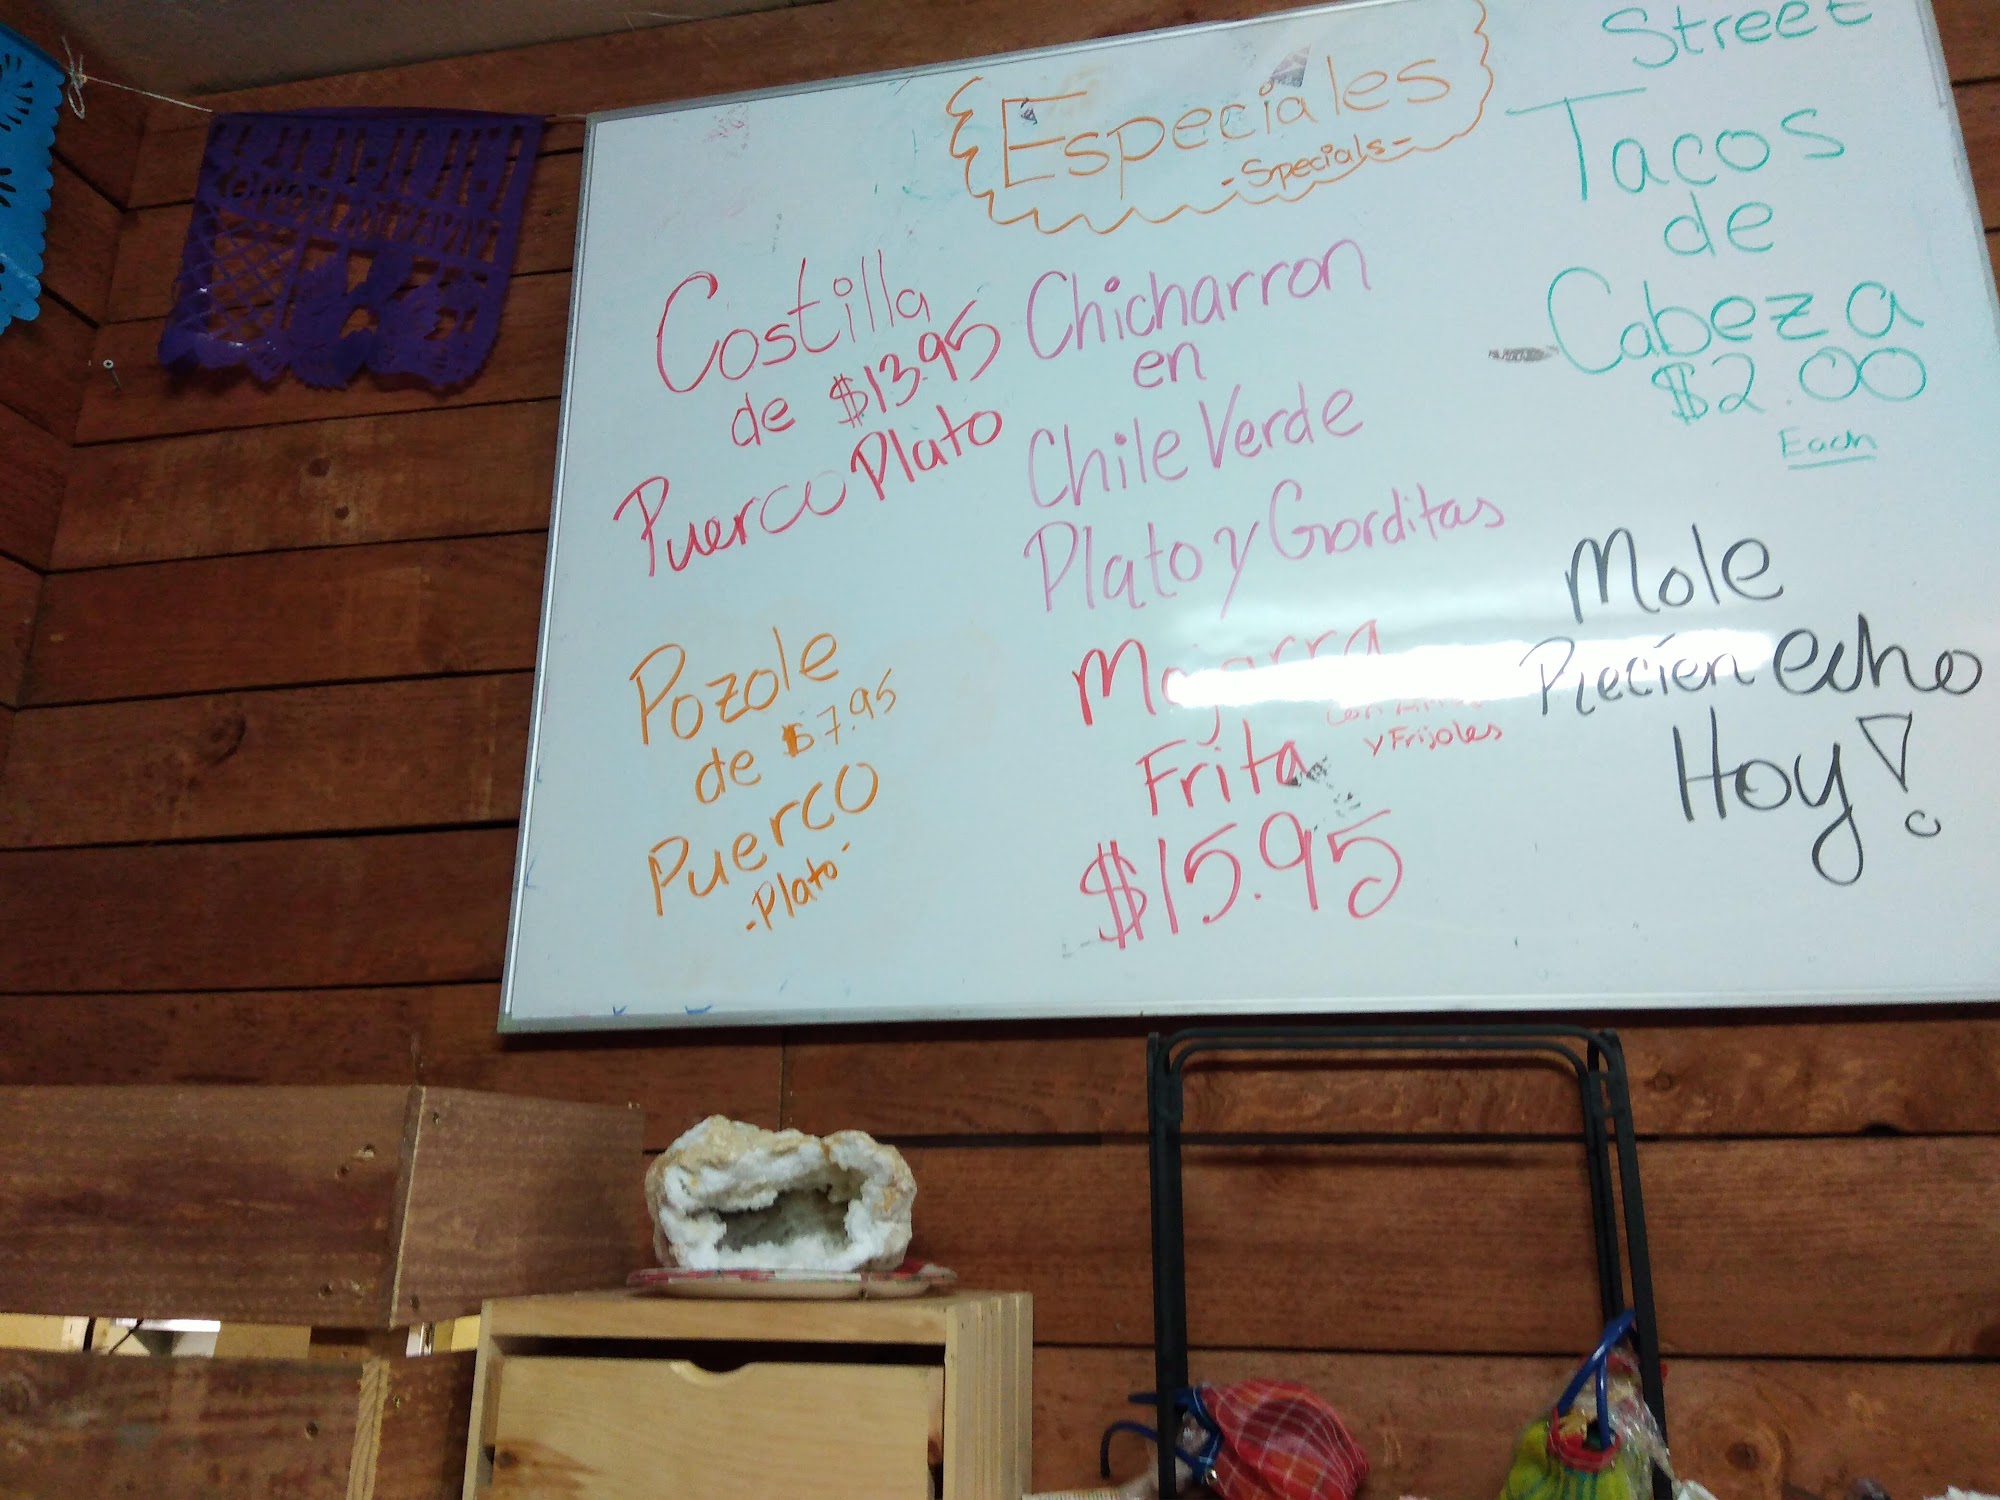 Especiales
-Specials-
Costilla
de $13.95
Puerco Plato
Pozole
de $7.95
Puerco
-Plato-
Chicharron
en
Chile Verde
Plato y Gorditas
Mojarra
Frita
con
y Frijoles
$15.95
Street
Tacos
de
Cabeza
$2.00
Each
Mole
Recien echo
Hoy!